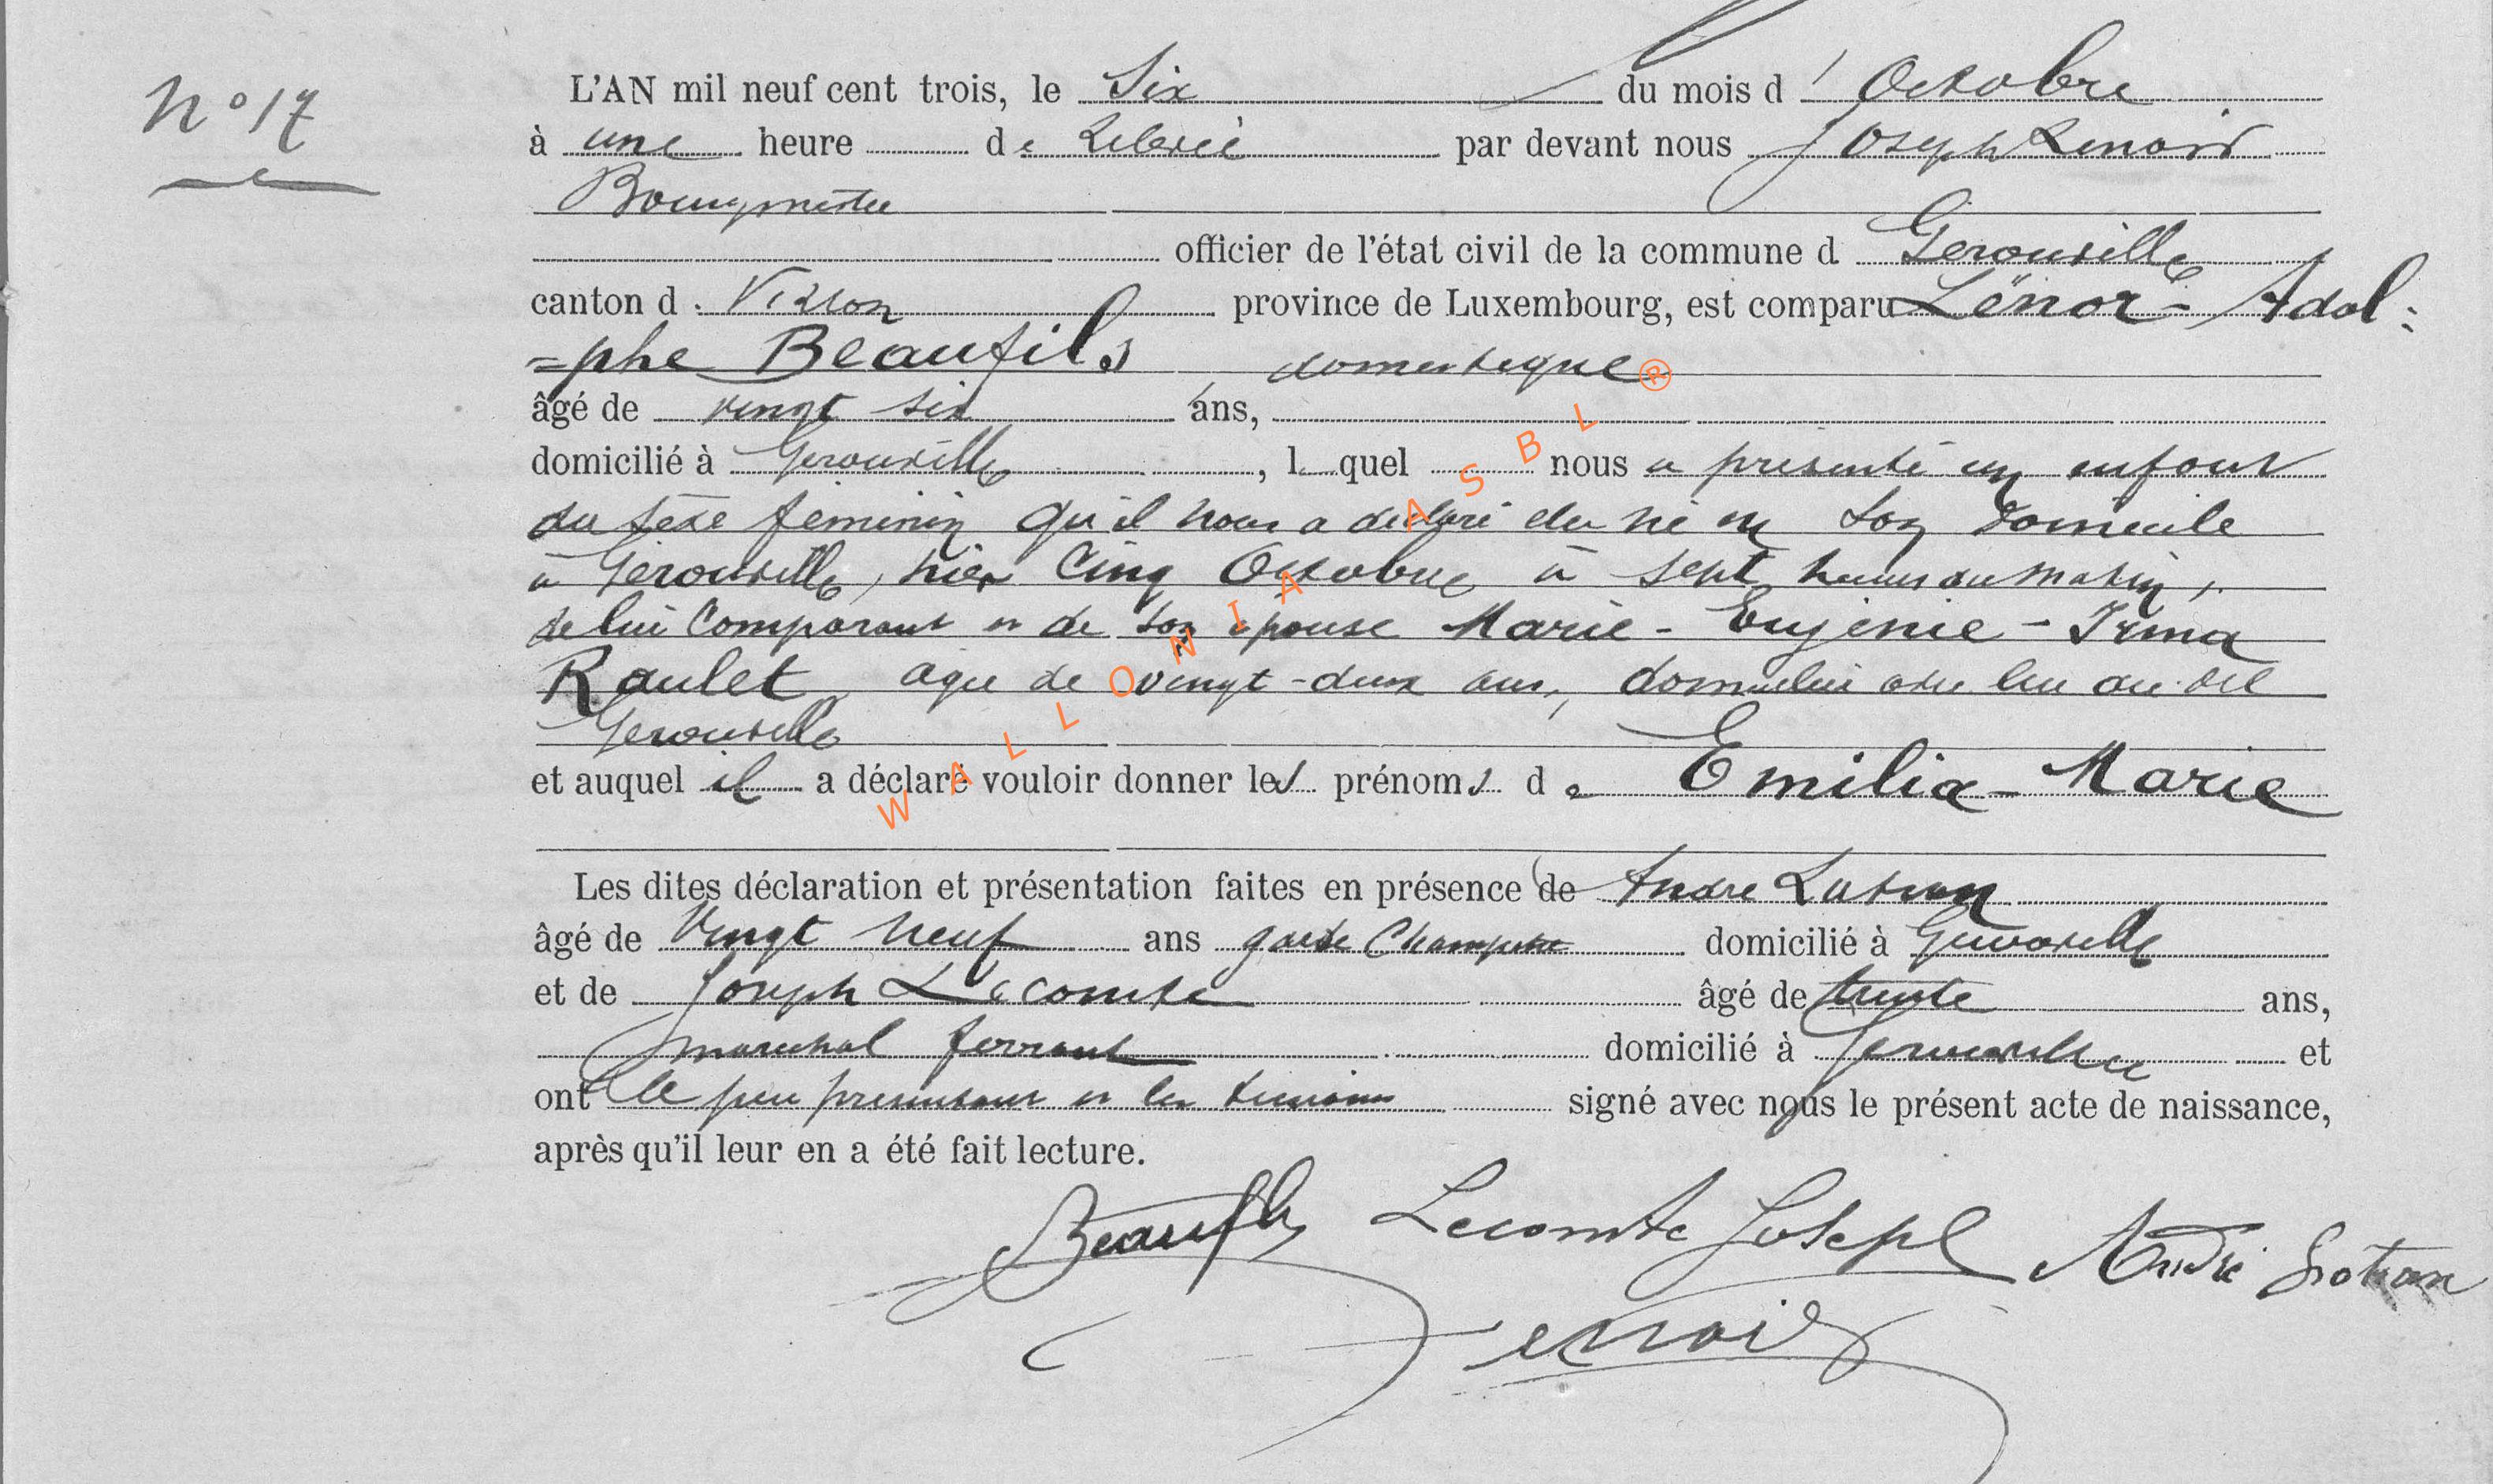 N° 17
L'AN mil neuf cent trois, le Six du mois d'Octobre
à une heure de Relevée par devant nous Joseph Lenoir
Bourgmestre
officier de l'état civil de la commune d Gerouville
canton d. Virton province de Luxembourg, est comparu Lénor-Adol=
=phe Beaufils domestique
âgé de vingt six ans,
domicilié à Gerouville, l quel nous a présenté un enfant
du sexe feminin qu'il nous a déclaré etre né en son domicile
a Gerouville, hier Cinq Octobre à sept heures du matin,
de lui Comparant et de son épouse Marie-Eugénie-Irma
Raulet agée de vingt-deux ans, domiciliée avec lui au dit
Gerouville
et auquel il a déclaré vouloir donner les prénoms de Emilia-Marie
Les dites déclaration et présentation faites en présence de André Lutran
âgé de Vingt neuf ans garde Champetre domicilié à Gerouville
et de Joseph Lecomte âgé de trente ans,
marechal ferrant domicilié à Gerouville et
ont le père présentant et les témoins signé avec nous le présent acte de naissance,
après qu'il leur en a été fait lecture.
Beaufils Lecomte Joseph André
Lenoir
WALLONIA ASBL ®